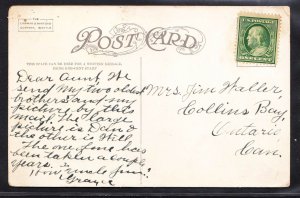 POST CARD
THIS SPACE CAN BE USED FOR A WRITTEN MESSAGE.
Dear Aunt, We
send my two oldest
brothers and my
pictures by this
mail. The large
picture is Dan &
the other is Will.
The one, Jane has
been taken a couple
years.
Grace
Mrs. Jim Waller
Collins Bay,
Ontario
Can.
ONE CENT